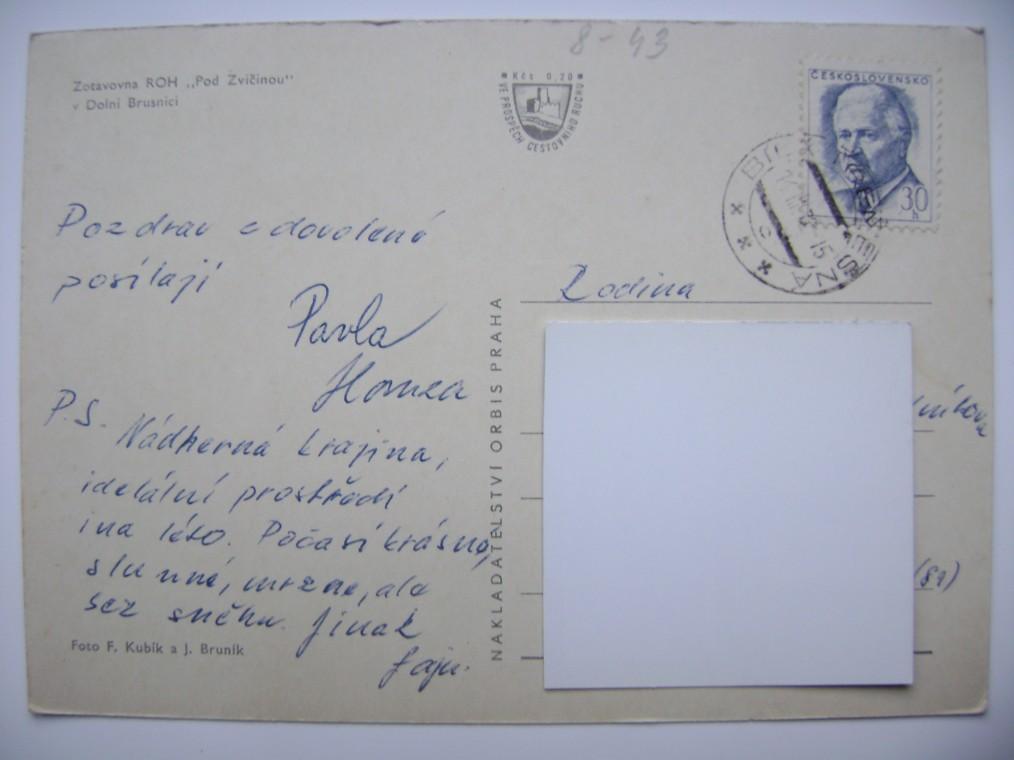 8-43
Zotavovna ROH „Pod Zvičinou"
v Dolní Brusnici
Kčs 0,20
VE PROSPĚCH CESTOVNÍHO RUCHU
ČESKOSLOVENSKO
30
h
Pozdrav z dovolené
posílají
Pavla
Honza
P.S. Nádherná krajina,
ideální prostředí
i na léto. Počasí krásné,
slunné, mrzne, ale
bez sněhu. Jinak
fajn.
Foto F. Kubík a J. Bruník
NAKLADATELSTVÍ ORBIS PRAHA
Rodina
(81)